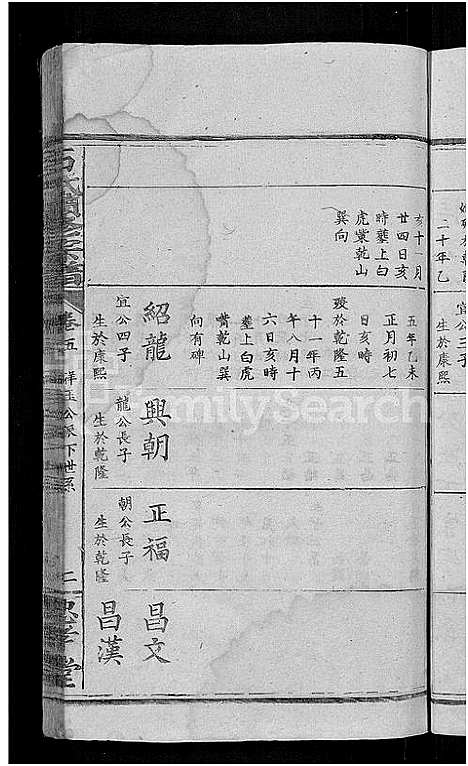 二十年乙
宜公三子
生於康熙
亥十一月
廿四日亥
時塟上白
虎棠乾山
巽向
五年乙未
正月初七
日亥時
殁於乾隆五
十一年丙
午八月十
六日亥時
塟上白虎
嘴乾山巽
向有碑
紹龍
宜公四子
生於康熙
興朝
龍公長子
生於乾隆
正福
朝公長子
生於乾隆
昌文
昌漢
石氏續修宗譜
卷五
祥玉公派下世系
二
堂
FamilySearch